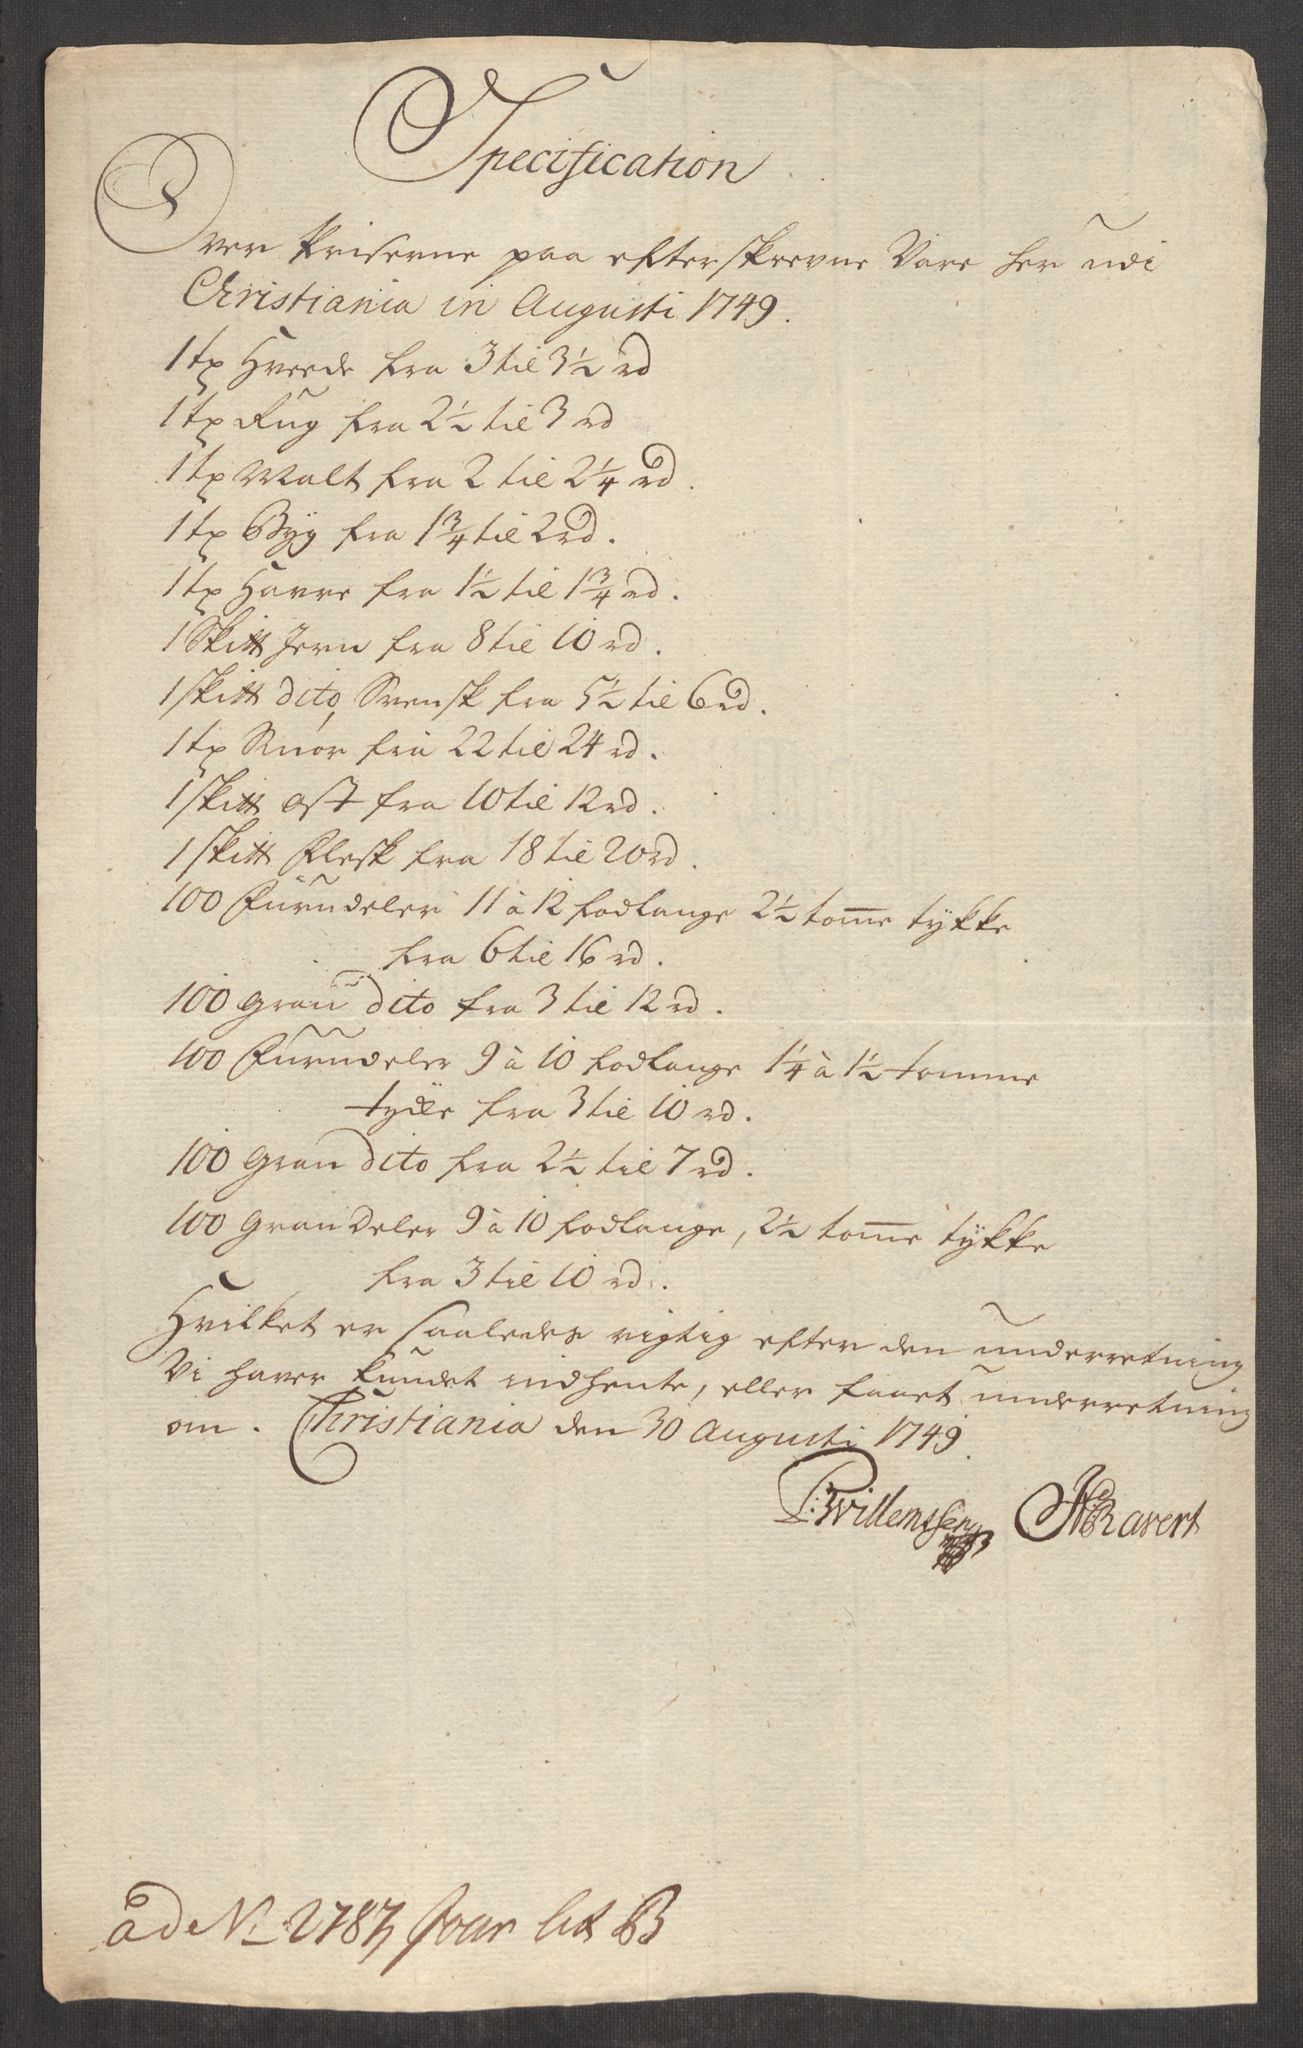 Specification
Over Priserne paa efterskrevne Vare her udi
Christiania in Augusti 1749.
1 tø Hvede fra 3 til 3½ rd
1 tø Rug fra 2½ til 3 rd
1 tø Malt fra 2 til 2¼ rd.
1 tø Byg fra 1¾ til 2 rd.
1 tø Havre fra 1½ til 1¾ rd.
1 Skitt Jern fra 8 til 10 rd.
1 skitt dito, Svensk fra 5½ til 6 rd.
1 tø Smør fra 22 til 24 rd.
1 skitt Ost fra 10 til 12 rd.
1 skitt Flesk fra 18 til 20 rd.
100 Furudeler 11 à 12 fod lange 2½ tom̅e tykke
fra 6 til 16 rd.
100 Gran dito fra 3 til 12 rd.
100 Furudeler 9 à 10 fod lange 1¼ à 1½ tomme
tyke fra 3 til 10 rd.
100 Gran dito fra 2½ til 7 rd.
100 Gran Deler 9 à 10 fod lange, 2½ tom̅e tykke
fra 3 til 10 rd.
Hvilket er saaledes rigtig efter den underretning
Vi haver kundet indhente, eller faaet underretning
om. Christiania den 30 Augusti 1749.
P: Willemssen Ravert
ad No 2787 Jour lit B